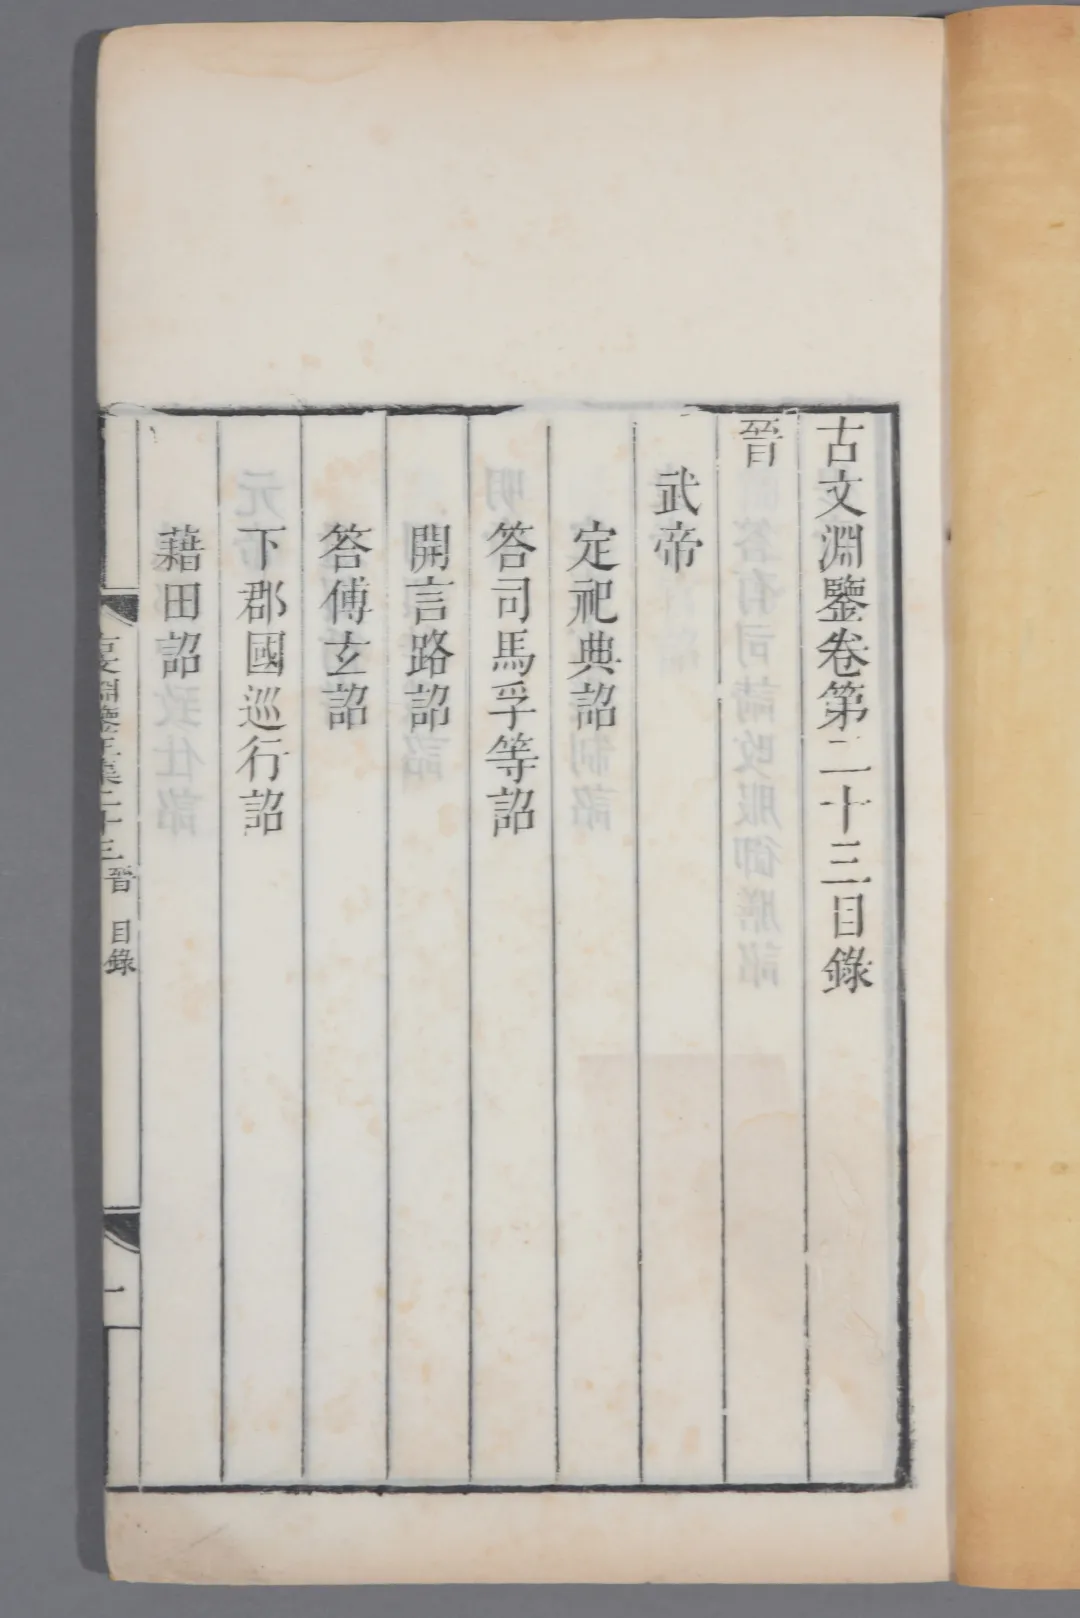 古文淵鑒卷第二十三目錄
晉
武帝
定祀典詔
答司馬孚等詔
開言路詔
答傅玄詔
下郡國巡行詔
藉田詔
古文淵鑒正集二十三 晉 目錄 一